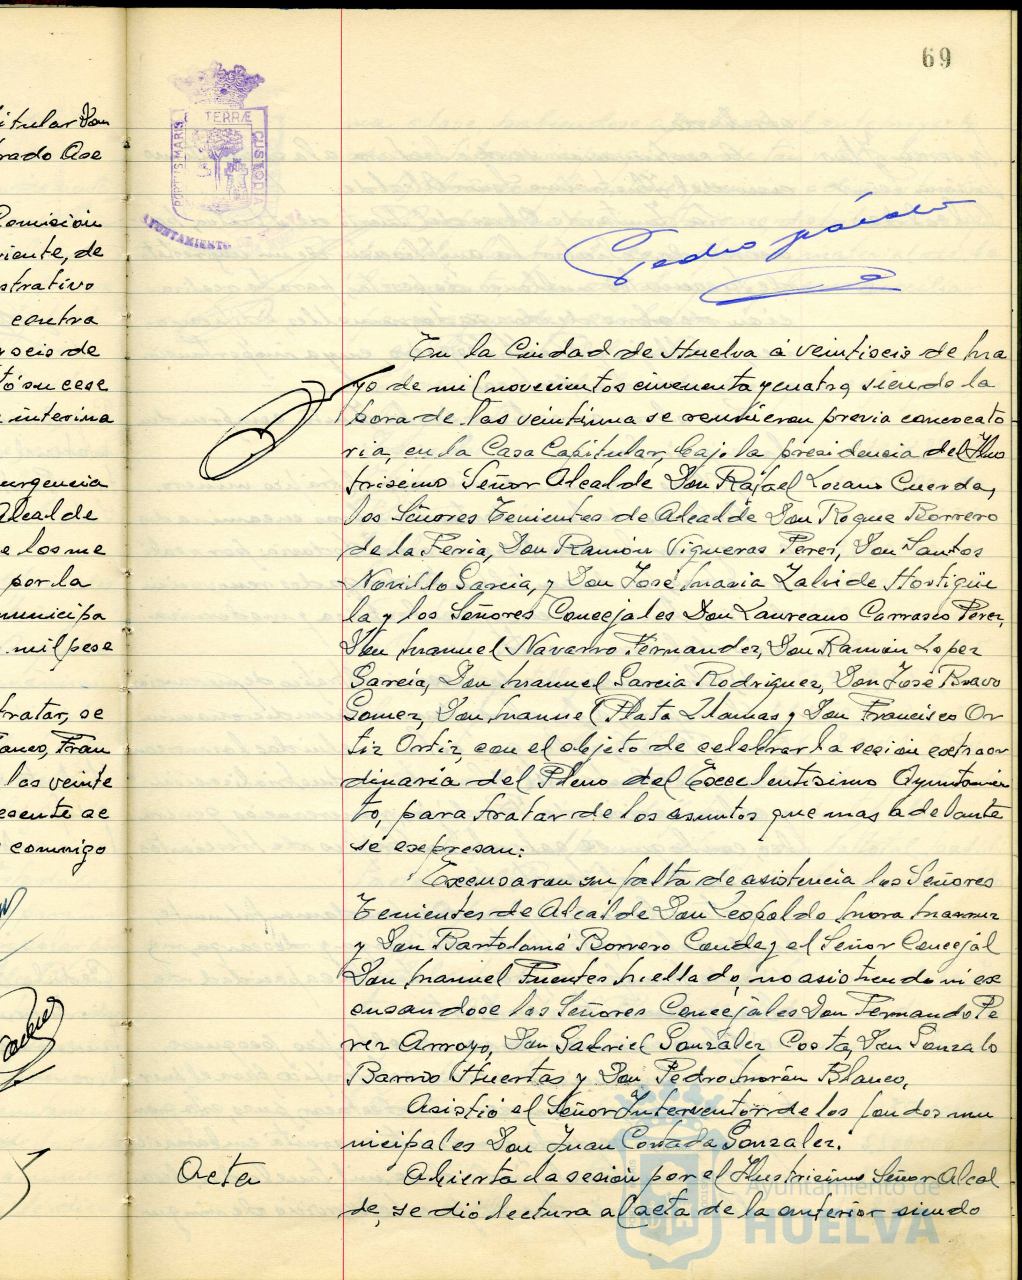 69
PORTUS MARIS
TERRÆ
CUSTODIA
AYUNTAMIENTO
itular Don
rado Ase
Comisión
viente, de
strativo
contra
tó su cese
interina
urgencia
Alcalde
e los me
por la
municipa
mil pese
tratar, se
anco, Fran
las veinte
esente ac
conmigo
Pedro
En la Ciudad de Huelva á veintiseis de ma
yo de mil novecientos cincuenta y cuatro, siendo la
hora de las veintiuna se reunieron previa convocato
ria, en la Casa Capitular, bajo la presidencia del Ilus
trisimo Señor Alcalde Don Rafael Lozano Cuerda,
los Señores Tenientes de Alcalde Don Roque Borrero
de la Feria, Don Ramón Vigueras Perez, Don Santos
Novillo Garcia, y Don José Maria Zalvide Hortigüe
la y los Señores Concejales Don Laureano Carrasco Perez,
Don Manuel Navarro Fernandez, Don Ramón Lopez
Garcia, Don Manuel Garcia Rodriguez, Don José Bravo
Gomez, Don Manuel Plata Llamas y Don Francisco Or
tiz Ortiz, con el objeto de celebrar la sesión extraor
dinaria del Pleno del Excelentisimo Ayuntamien
to, para tratar de los asuntos que mas adelante
se expresan:
Excusaron su falta de asistencia los Señores
Tenientes de Alcalde Don Leopoldo Mora
y Don Bartolomé Borrero Conde y el Señor Concejal
Don Manuel Fuentes Mellado, no asistiendo ni ex
cusandose los Señores Concejales Don Fernando Pe
rez Arroyo, Don Gabriel Gonzalez Costa, Don Gonzalo
Barrio Huertas y Don Pedro Morón Blanco,
Asistió el Señor Interventor de los fondos mu
nicipales Don Juan Cortada Gonzalez.
Acta
Abierta la sesión por el Ilustrisimo Señor Alcal
de, se dió lectura al acta de la anterior siendo
Ayuntamiento de
HUELVA